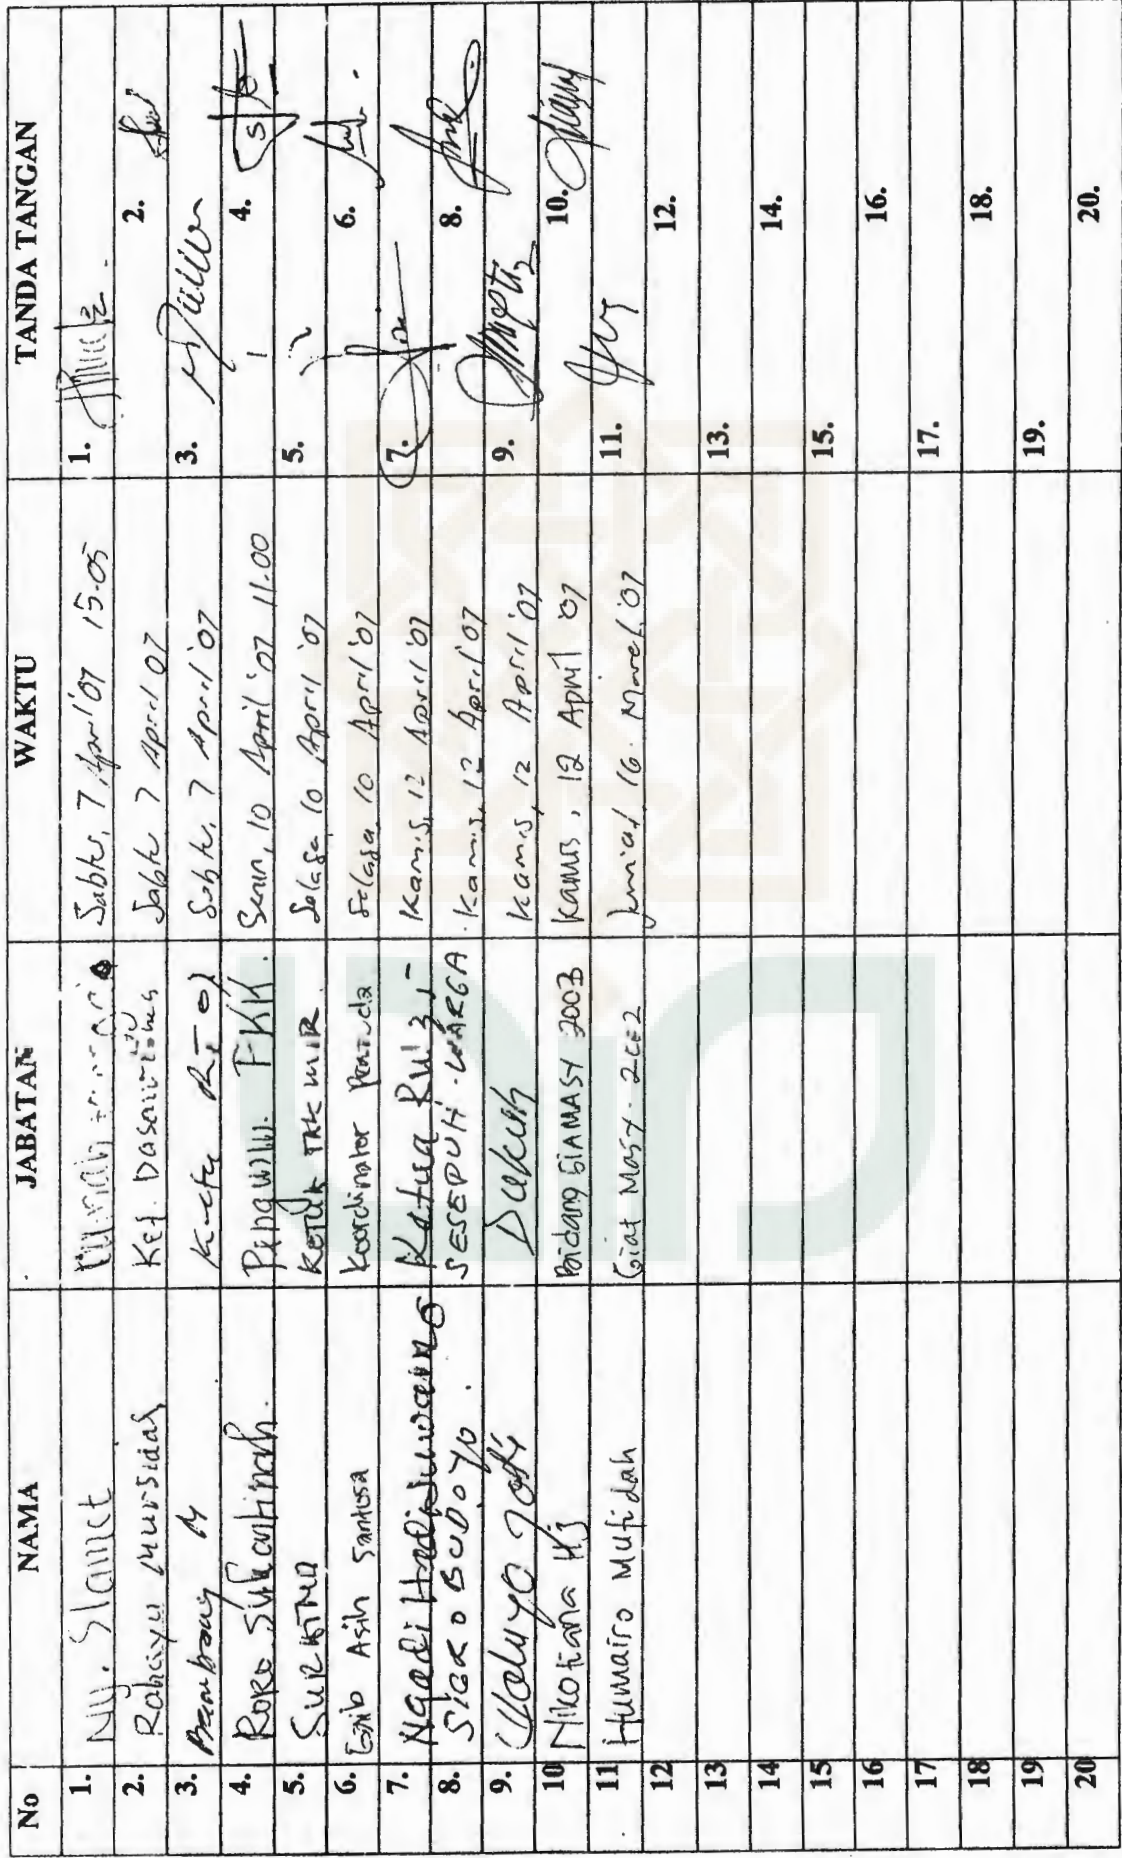 No NAMA JABATAN WAKTU TANDA TANGAN
1. Ny. Slamet Sabtu, 7 April '07 15.05 1.
2. Rahayu Mursidah Sabtu 7 April '07 2.
3. Bambang M Sabtu, 7 April '07 3.
4. Roro Sukartinah. PKK. Senin, 10 April '07 11.00 4.
5. TAKMIR Selasa 10 April '07 5.
6. Asih Santosa Koordinator Pemuda Selasa 10 April '07 6.
7. Ngadi Ketua RW 3 Kamis, 12 April '07 7.
8. SIGRO BUDOYO. SESEPUH WARGA Kamis, 12 April '07 8.
9. Waluyo Jati Dukuh Kamis, 12 April '07 9.
10 Nikotiana H.J 2003 Kamis, 12 April '07 10.
11 Humairo Mufidah Giat Masy 16 Maret '07 11.
12 12.
13 13.
14 14.
15 15.
16 16.
17 17.
18 18.
19 19.
20 20.